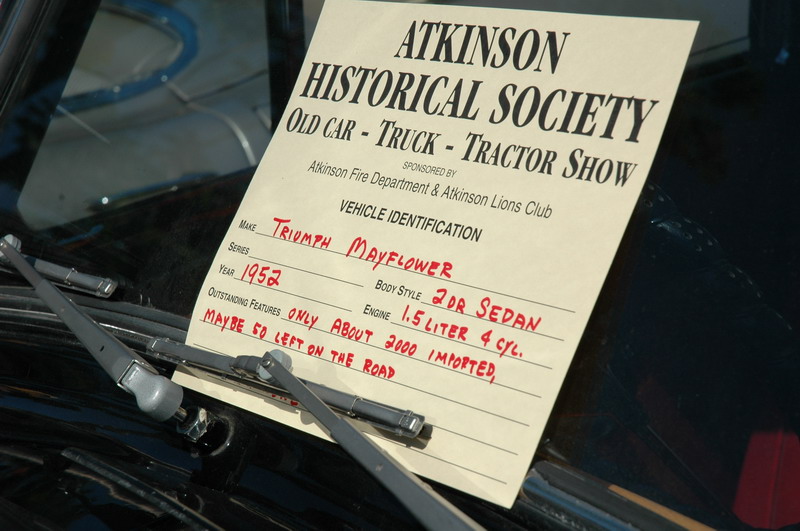 ATKINSON
HISTORICAL SOCIETY
OLD CAR - TRUCK - TRACTOR SHOW
SPONSORED BY
Atkinson Fire Department & Atkinson Lions Club
VEHICLE IDENTIFICATION
MAKE TRIUMPH MAYFLOWER
SERIES BODY STYLE 2 DR SEDAN
YEAR 1952 ENGINE 1.5 LITER 4 CYL.
OUTSTANDING FEATURES ONLY ABOUT 2000 IMPORTED,
MAYBE 50 LEFT ON THE ROAD